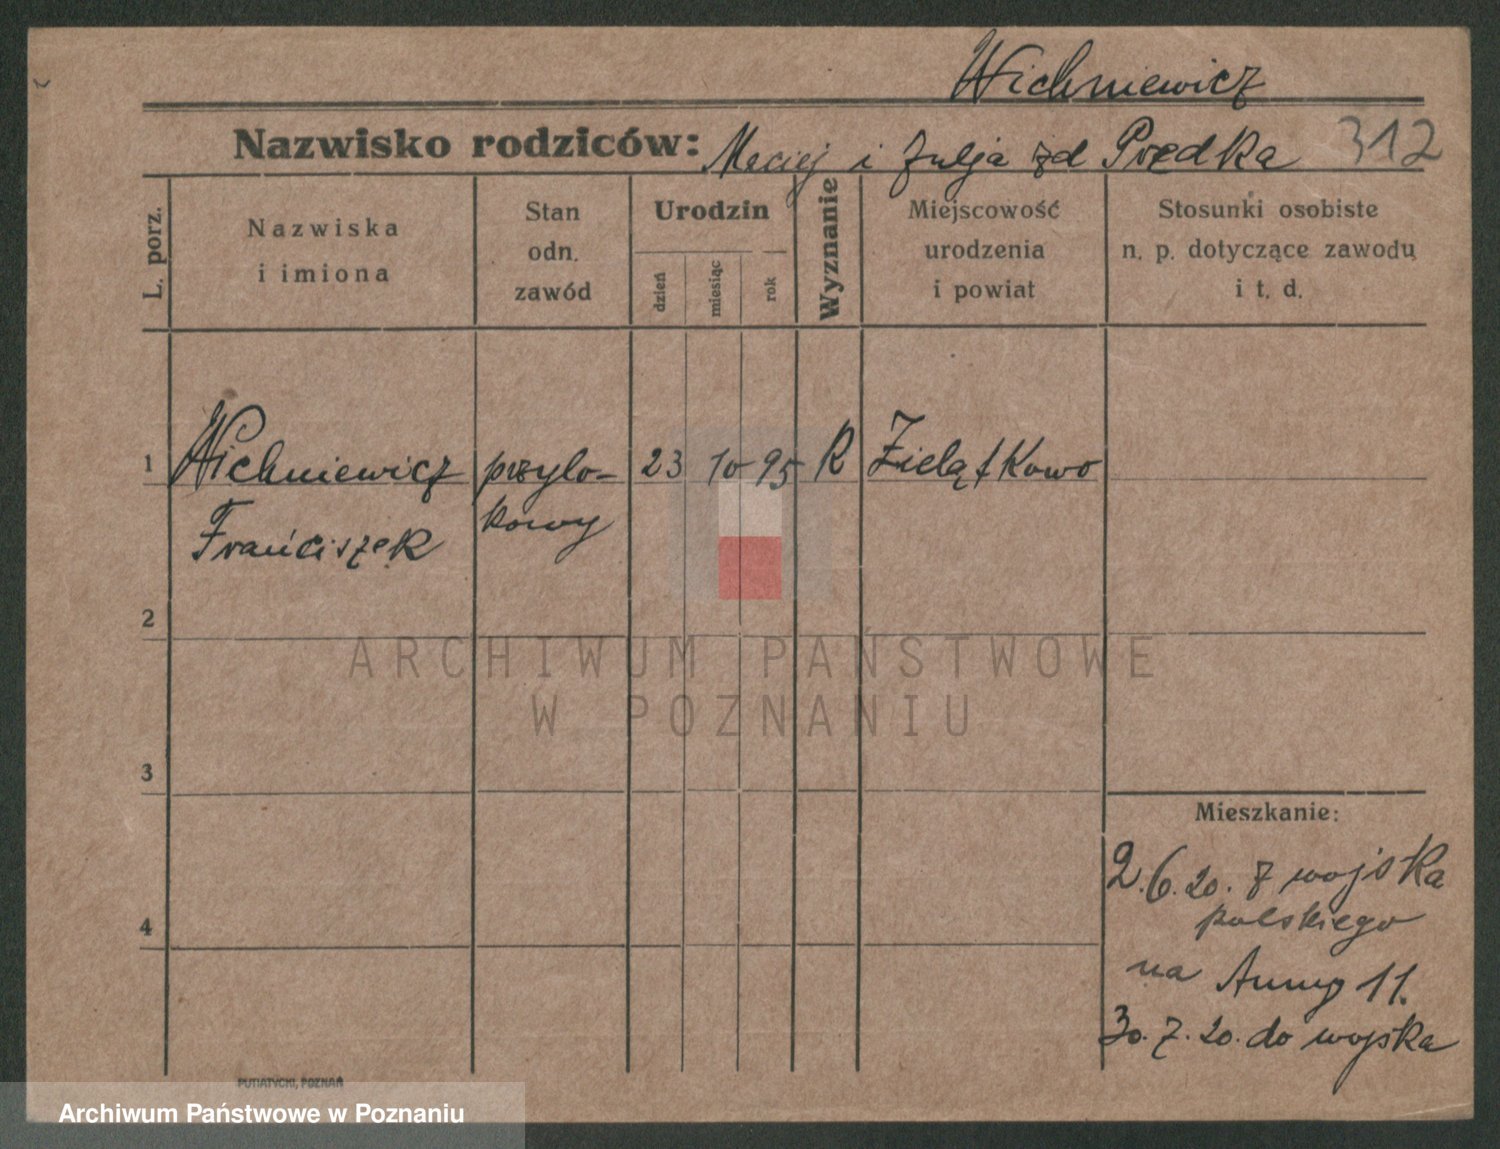 Wichniewicz
Nazwisko rodziców: Maciej i Julja zd Prędka 312
L. porz.
Nazwiska
i imiona
Stan
odn.
zawód
Urodzin
dzień
miesiąc
rok
Wyznanie
Miejscowość
urodzenia
i powiat
Stosunki osobiste
n. p. dotyczące zawodu
i t. d.
1 Wichniewicz przylo- 23 10 95 R Zielątkowo
Franciszek kowy
2
3
4
Mieszkanie:
2.6.20. z wojska
polskiego
na Anny 11.
30.7.20. do wojska
PUTIATYCKI, POZNAŃ
ARCHIWUM PAŃSTWOWE
W POZNANIU
Archiwum Państwowe w Poznaniu